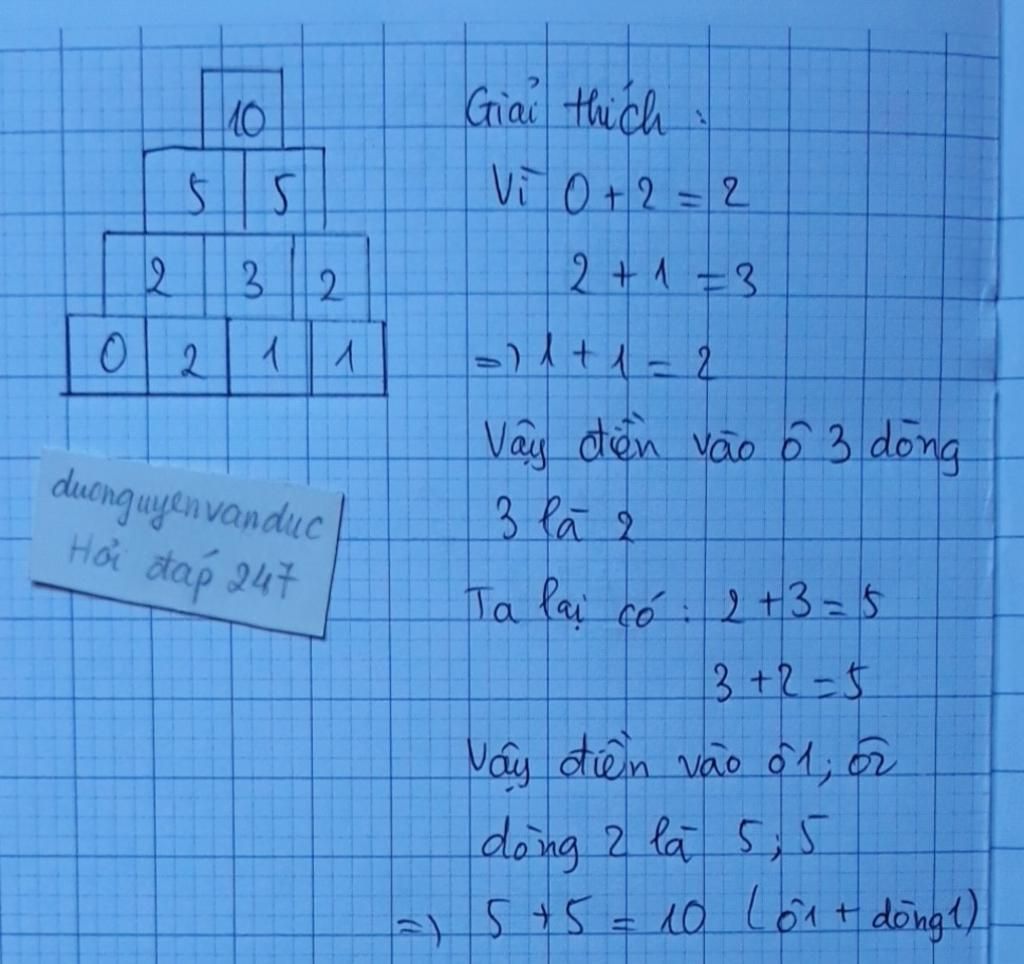 10
5 5
2 3 2
0 2 1 1
duonguyenvanduc
Hỏi đáp 247
Giải thích :
Vì 0 + 2 = 2
2 + 1 = 3
=> 1 + 1 = 2
Vậy điền vào ô 3 dòng
3 là 2
Ta lại có : 2 + 3 = 5
3 + 2 = 5
Vậy điền vào ô 1 ; ô 2
dòng 2 là 5 ; 5
=> 5 + 5 = 10 ( ô 1 + dòng 1 )